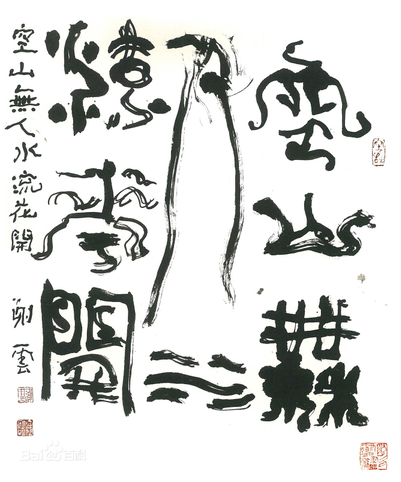 空山無
人水
流花開
空山無人水流花開
謝雲
Bai百科